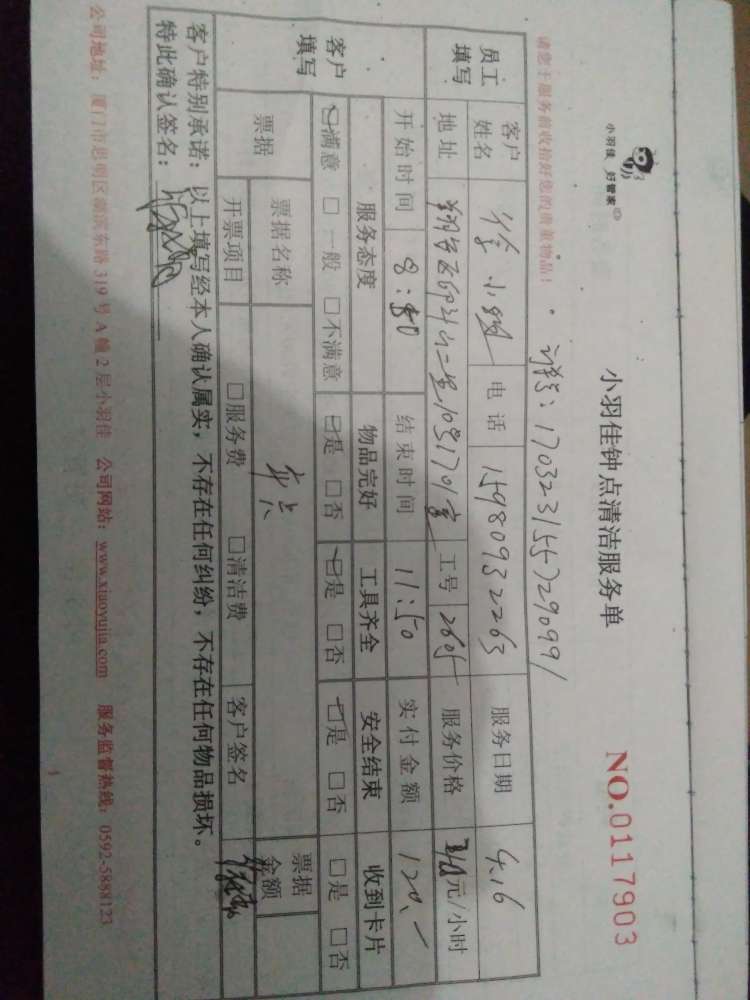 小羽佳 好管家
小羽佳钟点清洁服务单
NO.0117903
请您于服务前收拾好您的贵重物品!
订单号: 170323155729099
员工填写 客户姓名 徐小 电话 15980932263 服务日期 4.16
地址 翔安区 工号 2605 服务价格 元/小时
客户填写 开始时间 8: 结束时间 11:50 实付金额 120.-
服务态度 物品完好 工具齐全 安全结束 收到卡片
☑满意 □一般 □不满意 ☑是 □否 ☑是 □否 ☑是 □否 □是 □否
票据 票据名称 票据金额
开票项目 □服务费 □清洁费 客户签名
客户特别承诺: 以上填写经本人确认属实,不存在任何纠纷,不存在任何物品损坏。
特此确认签名:
公司地址: 厦门市思明区湖滨东路 319 号 A 幢 2 层小羽佳 公司网站: www.xiaoyujia.com 服务监督热线: 0592-5888123